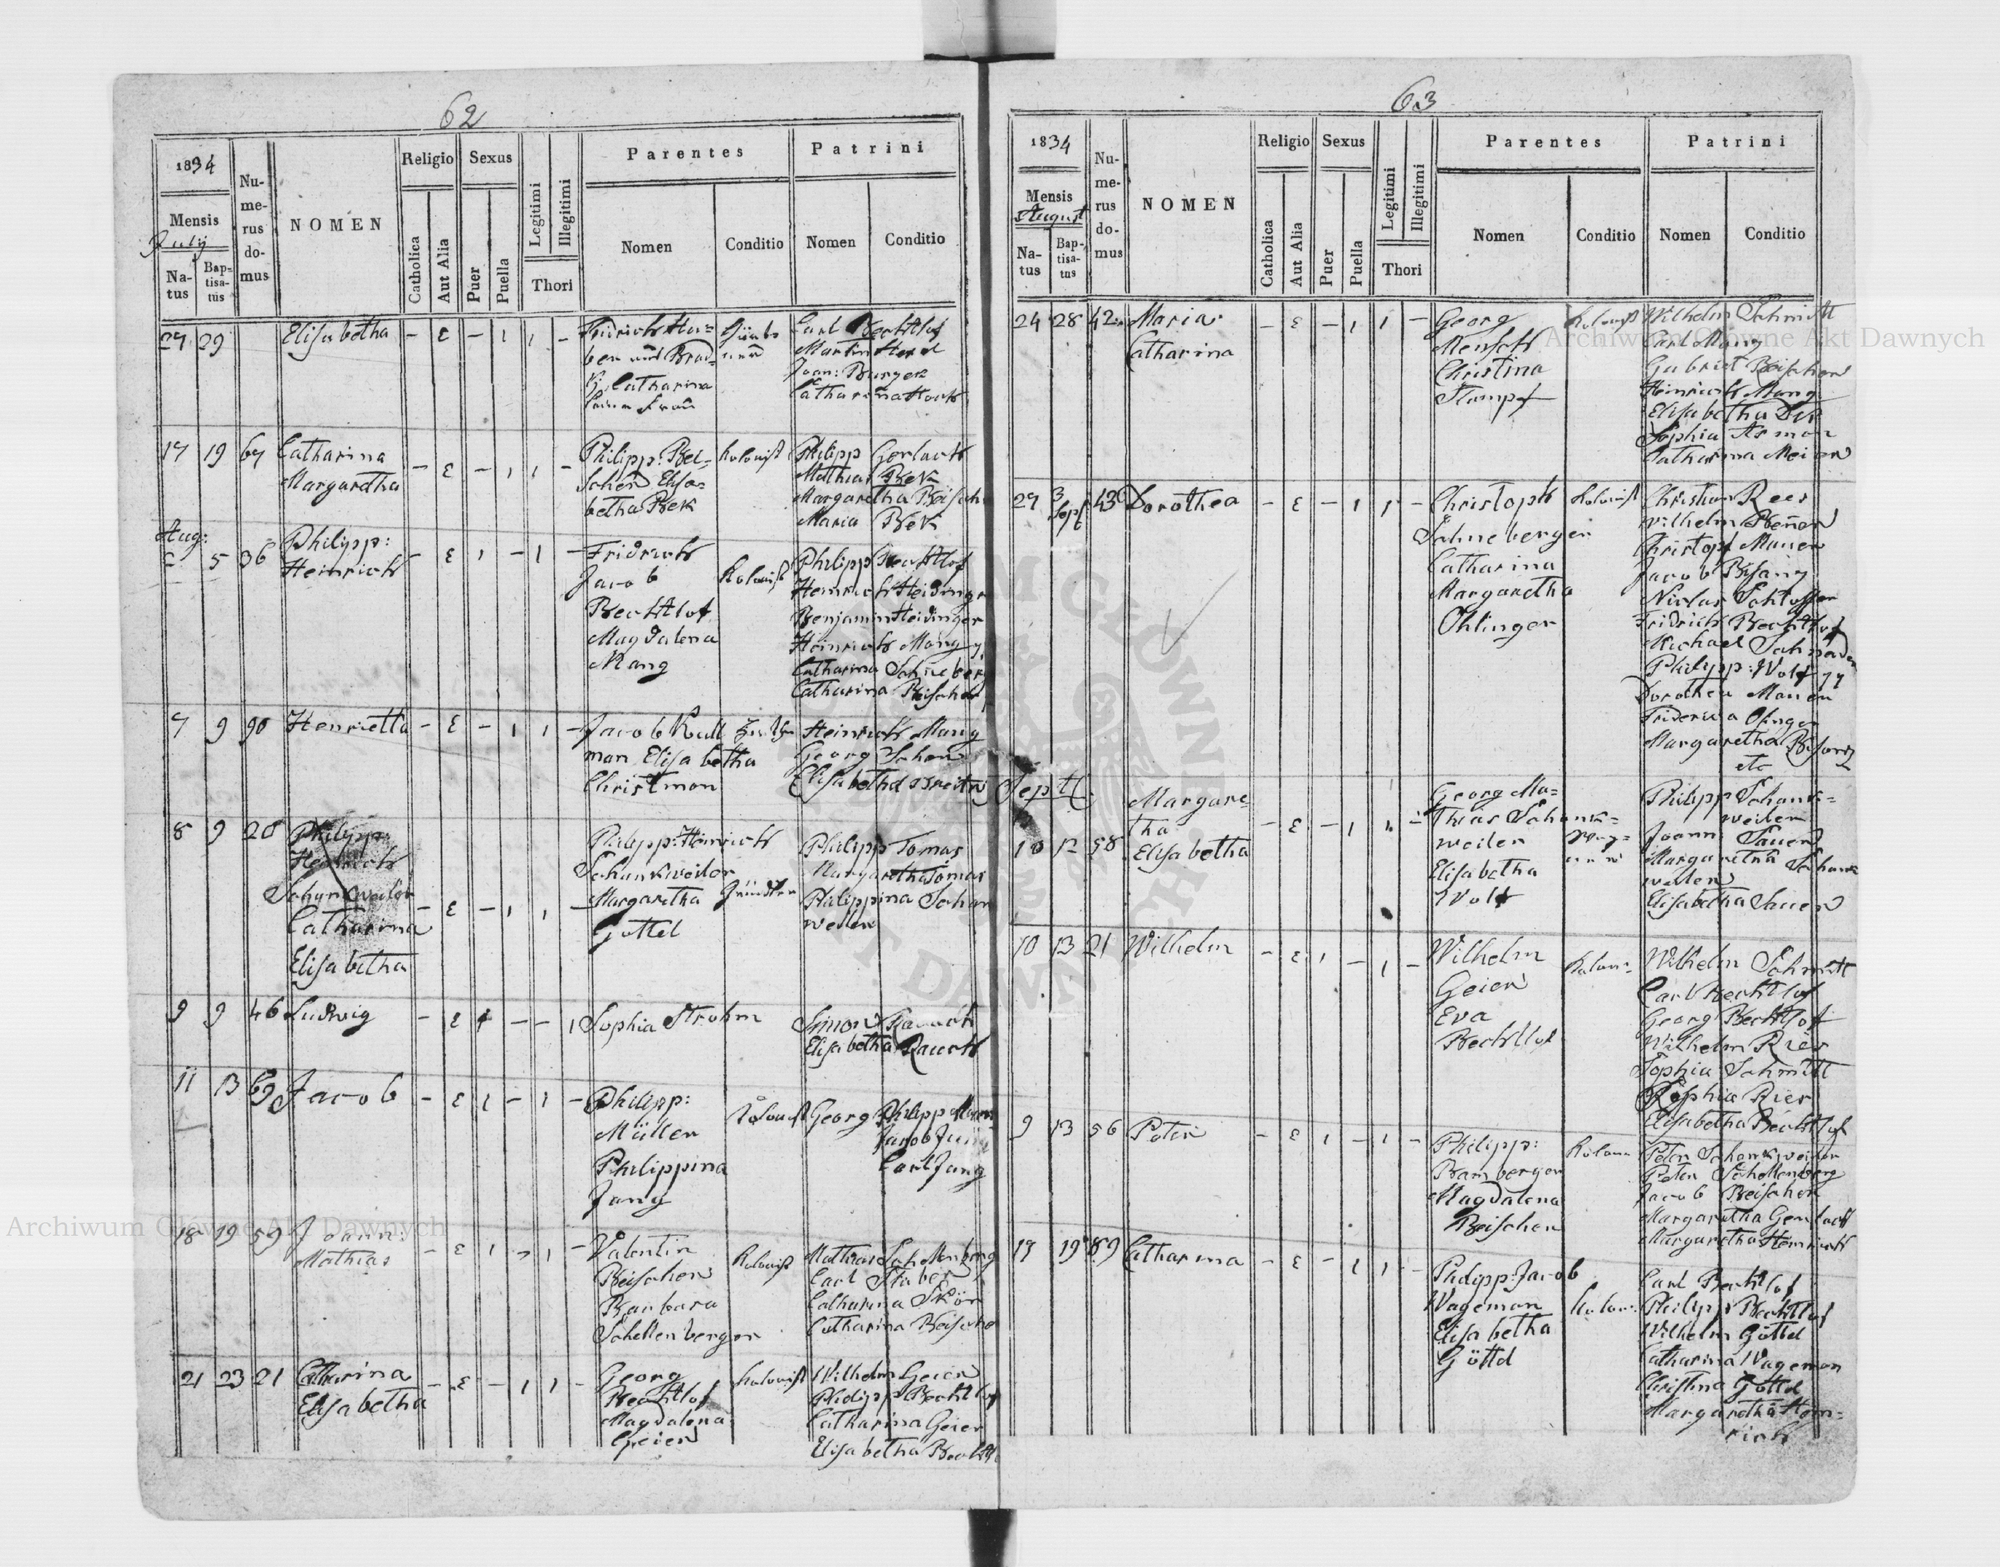 62
1834
Mensis
July
Natus
Baptisatus
Numerus domus
NOMEN
Religio
Catholica
Aut Alia
Sexus
Puer
Puella
Legitimi
Illegitimi
Thori
Parentes
Nomen
Conditio
Patrini
Nomen
Conditio
29 Elisabetha - E - 1 1 -
Catharina
Carl Bechtlof
Martin
Joan: Burger
Catharina
17 19 67 Catharina - E - 1 1 - Philipp Bei- Kolonist Philipp Gerlach
Margaretha
scher Elisa-
betha Bek
Mathias Bek
Margaretha Beischer
Maria Bek
Aug:
5 36 Philipp: - E 1 - 1 - Fridrich Kolonist Philipp Bechtlof
Heinrich
Jacob
Bechtlof
Magdalena
Mang
Heinrich Heidinger
Benjamin Heidinger
Heinrich Mang
Catharina Schneberg
Catharina Beischer
7 9 90 Henrietta - E - 1 1 - Jacob Kull Heinrich Mang
man Elisabetha
Christman
Georg
Elisabetha
8 9 20 Philipp:
Heinrich
Schankweiler
Catharina - E - 1 1 -
Elisabetha
Philipp: Heinrich
Schankweiler
Margaretha
Gottel
Philipp Tomas
Margaretha Tomas
Philippina Schan
weiler
9 9 46 Ludwig - E 1 - - 1 Sophia Strohm Simon Rauch
Elisabetha Rauch
11 13 69 Jacob - E 1 - 1 - Philipp: Kolonist Georg Philipp
Müller
Philippina
Jung
Jacob Jung
Carl Jung
18 19 59 Joann: - E 1 - 1 - Valentin Kolonist Mathias Schellenberg
Mathias
Beischer
Barbara
Schellenberger
Carl
Catharina
Catharina Beischer
21 23 21 Catharina - E - 1 1 - Georg Kolonist Wilhelm Geier
Elisabetha
Bechtlof
Magdalena
Geier
Philipp Bechtlof
Catharina Geier
Elisabetha Bechtl
63
1834
Mensis
August
Natus
Baptisatus
Numerus domus
NOMEN
Religio
Catholica
Aut Alia
Sexus
Puer
Puella
Legitimi
Illegitimi
Thori
Parentes
Nomen
Conditio
Patrini
Nomen
Conditio
24 28 42 Maria - E - 1 1 - Georg Kolonist Wilhelm Schmitt
Catharina
Mensch
Christina
Stumpf
Carl Mang
Gabriel Beischer
Heinrich Mang
Elisabetha
Sophia
Catharina Meier
29 3 Sept 43 Dorothea - E - 1 1 - Christoph Kolonist Christian Rees
Schneberger
Catharina
Margaretha
Ohlinger
Wilhelm
Christof Mauer
Jacob Bisang
Niclas
Fridrich Bechtlof
Michael Schneider
Philipp: Wolf
Dorothea Mauer
Margaretha Bisang
etc
Sept
10 12 58 Margare- - E - 1 1 - Georg Ma- Philipp Schank-
tha
Elisabetha
thias Schank-
weiler
Elisabetha
Wolf
weiler
Joann: Sauer
Margaretha Schank
weiler
Elisabetha Sauer
10 13 21 Wilhelm - E 1 - 1 - Wilhelm Kolon: Wilhelm Schmitt
Geier
Eva
Bechtlof
Carl Bechtlof
Georg Bechtlof
Wilhelm Rier
Sophia Schmitt
Sophia Rier
Elisabetha Bechtlof
9 13 56 Peter - E 1 - 1 - Philipp: Kolon: Peter Schankweiler
Bamberger
Magdalena
Beischer
Peter Schellenberg
Jacob Beischer
Margaretha Gerlach
Margaretha Heinrich
17 19 89 Catharina - E - 1 1 - Philipp: Jacob Kolon: Carl Bechtlof
Wageman
Elisabetha
Göttel
Philipp Bechtlof
Wilhelm Göttel
Catharina Wageman
Christina Göttel
Margaretha Hein-
rich
Archiwum Główne Akt Dawnych
Archiwum Główne Akt Dawnych